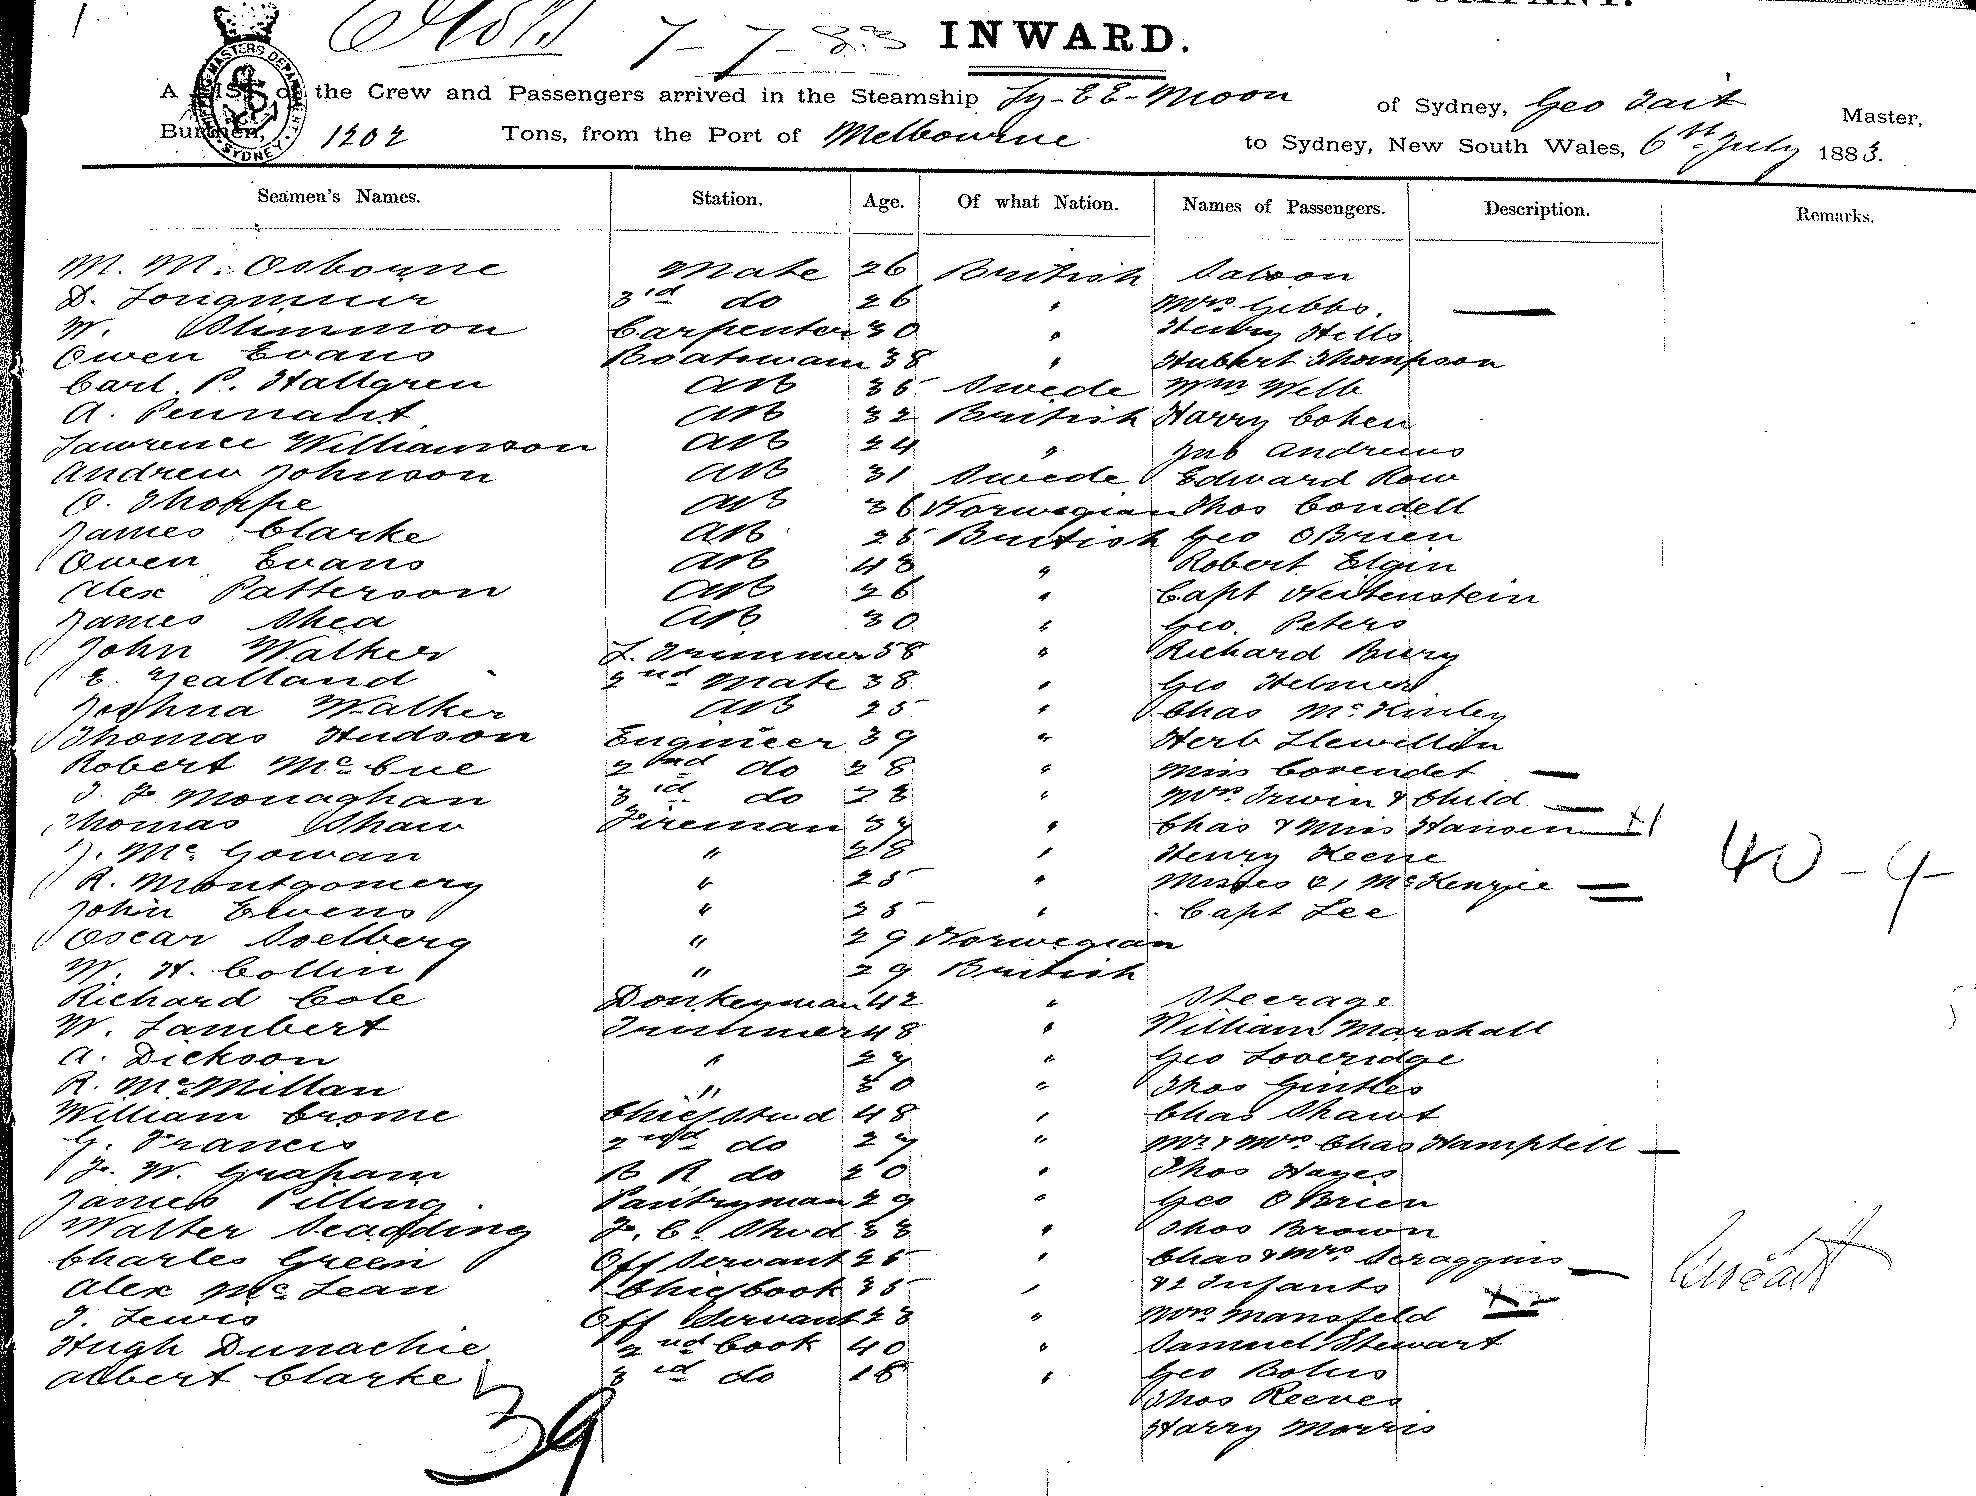 COMPANY.
7-7-83 INWARD.
A List of the Crew and Passengers arrived in the Steamship Ly-EE-Moon of Sydney, Geo Tait Master,
Burthen, 1202 Tons, from the Port of Melbourne to Sydney, New South Wales, 6th July 1883.
Seamen's Names. Station. Age. Of what Nation. Names of Passengers. Description. Remarks.
M. M. Osbourne Mate 26 British Saloon
D. Longmuir 3rd do 26 " Mrs Gibbs.
W. Slimmon Carpenter 30 " Henry Hills
Owen Evans Boatswain 38 " Hubert Thompson
Carl. P. Hallgren AB 35 Swede Wm Webb
A. Pennant AB 32 British Harry Cohen
Lawrence Williamson AB 24 " Jas Andrews
Andrew Johnson AB 31 Swede Edward Row
O. Thorpe AB 36 Norwegian Thos Condell
James Clarke AB 25 British Geo OBrien
Owen Evans AB 43 " Robert Elgin
Alex Patterson AB 26 " Capt Neitenstein
James Shea AB 30 " Geo. Peters
John Walker L. Trimmer 58 " Richard Bury
E. Yealland 2nd Mate 38 " Geo
Joshua Walker AB 25 " Chas McKinley
Thomas Hudson Engineer 39 " Herb Llewellon
Robert McCue 2nd do 28 " Miss Corendet
T. J. Monaghan 3rd do 28 " Mrs. Irwin & Child
Thomas Shaw Fireman 37 " Chas & Miss Hansen +1
J. McGowan " 28 " Henry Keene
R. Montgomery " 25 " Misses McKenzie 40-9-
John Ewens " 25 " Capt Lee
Oscar Soelberg " 29 Norwegian
W. H. Collin " 29 British
Richard Cole Donkeyman 42 " Steerage
W. Lambert Trimmer 48 " William Marshall
A. Dickson " 27 " Geo Loveridge
R. McMillan " 30 " Thos
William Crome Chief Stwd 48 " Chas Shawt
G. Francis 2nd do 27 " Mr & Mrs Chas Hamptell
J. W. Graham B R do 20 " Thos Hayes
James Pilling Pantryman 29 " Geo OBrien
Walter Seadding F. C. Stwd 33 " Thos Brown
Charles Green Off Servant 25 " Chas & Mrs. Scroggins
Alex McLean Chief Cook 35 " & 2 Infants
T. Lewis Off Servant 23 " Mrs Mansfeld
Hugh Dunachie 2nd Cook 40 " Samuel Stewart
Albert Clarke 3rd do 18 " Geo Bolus
Thos Reeves
39 Harry Morris